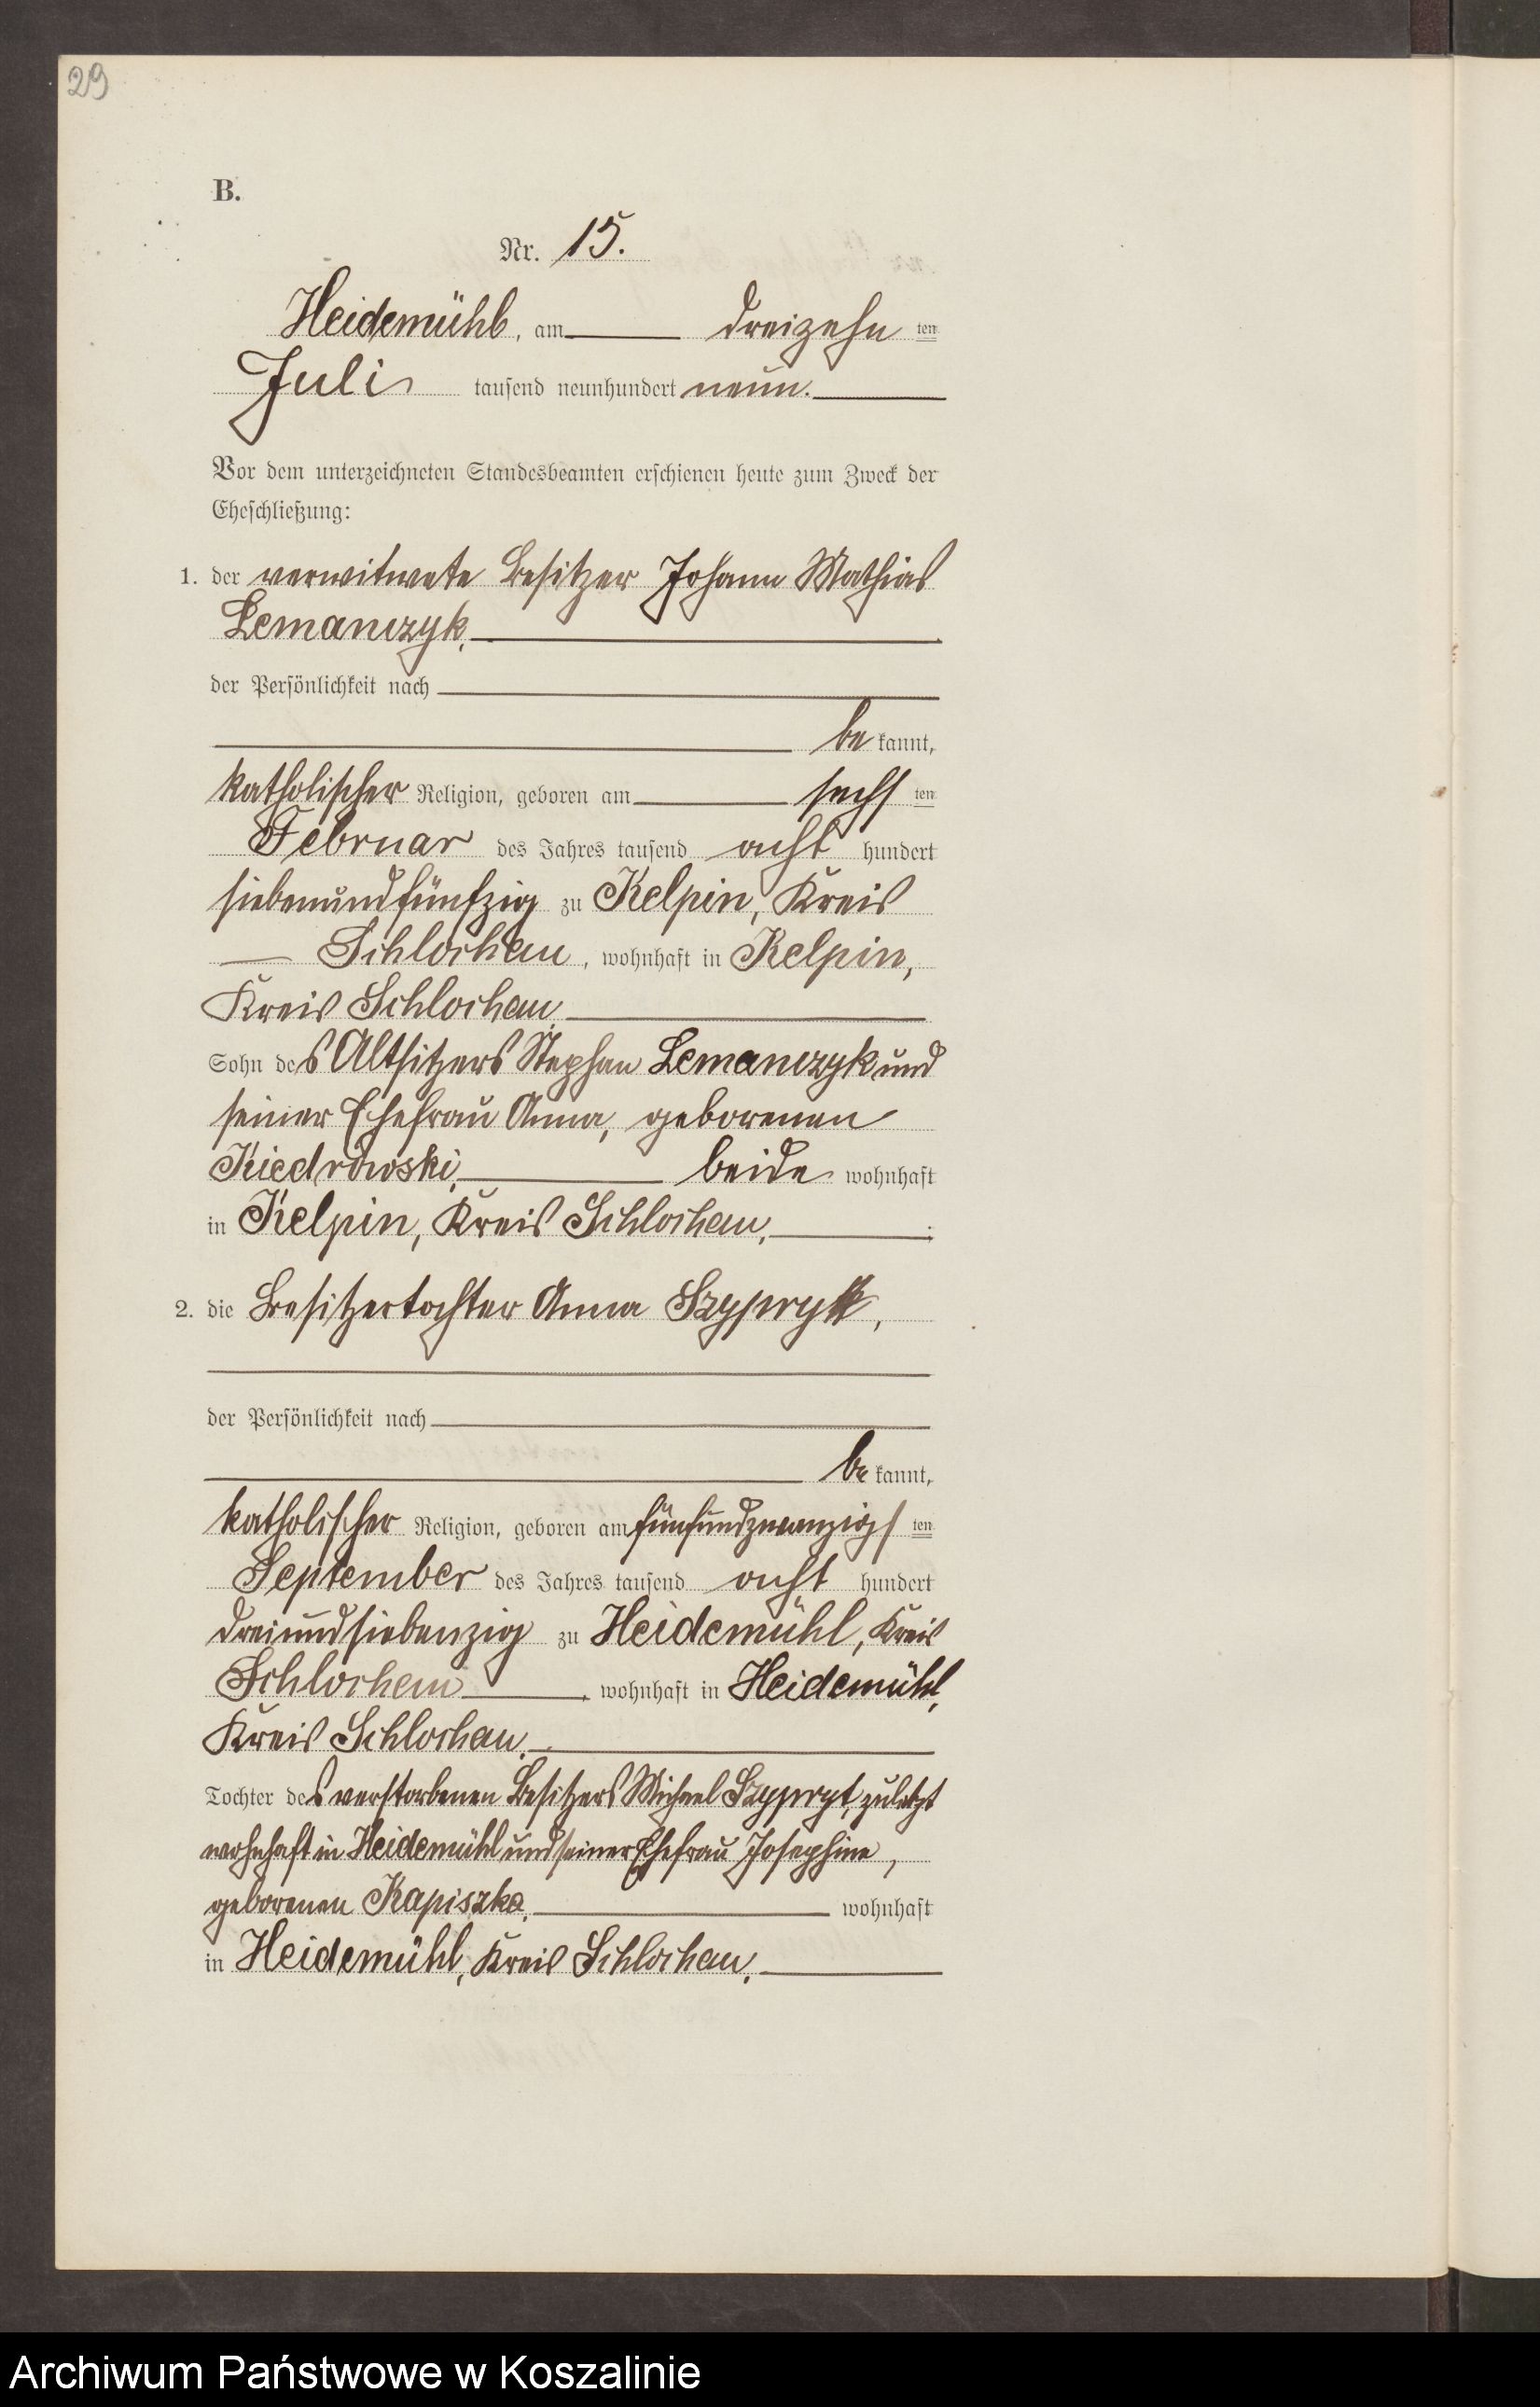 29
B.
Nr. 15.
Heidemühl, am dreizehn ten
Juli tausend neunhundert neun.
Vor dem unterzeichneten Standesbeamten erschienen heute zum Zweck der
Eheschließung:
1. der verwitwete Besitzer Johann Mathias
Lemanczyk,
der Persönlichkeit nach
be kannt,
katholischer Religion, geboren am sechs ten
Februar des Jahres tausend acht hundert
siebenundfünfzig zu Kelpin, Kreis
Schlochau, wohnhaft in Kelpin,
Kreis Schlochau,
Sohn des Altsitzers Stephan Lemanczyk und
seiner Ehefrau Anna, geborenen
Kiedrowski, beide wohnhaft
in Kelpin, Kreis Schlochau, ;
2. die Besitzertochter Anna
der Persönlichkeit nach
be kannt,
katholischer Religion, geboren am fünfundzwanzigs ten
September des Jahres tausend acht hundert
dreiundsiebenzig zu Heidemühl, Kreis
Schlochau, wohnhaft in Heidemühl,
Kreis Schlochau,
Tochter des verstorbenen Besitzers Michael Szypryt, zuletzt
wohnhaft in Heidemühl und seiner Ehefrau Josephine,
geborenen Kapiszka, wohnhaft
in Heidemühl, Kreis Schlochau,
Archiwum Państwowe w Koszalinie